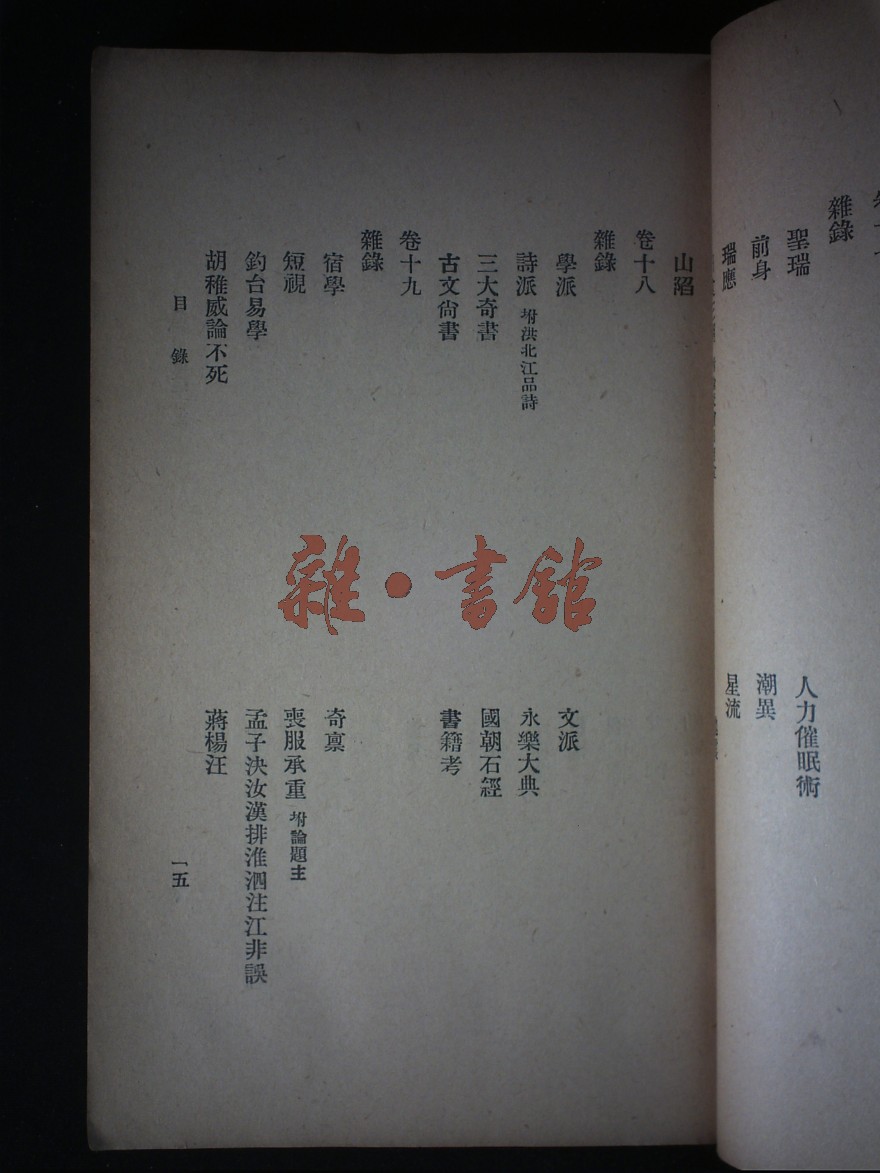 雜錄
聖瑞
人力催眠術
前身
潮異
瑞應
星流
山
卷十八
雜錄
學派
文派
詩派 坿洪北江品詩
永樂大典
三大奇書
國朝石經
古文尙書
書籍考
卷十九
雜錄
宿學
奇禀
短視
喪服承重 坿論題主
釣台易學
孟子決汝漢排淮泗注江非誤
胡稚威論不死
蔣楊汪
目錄
一五
雜·書館